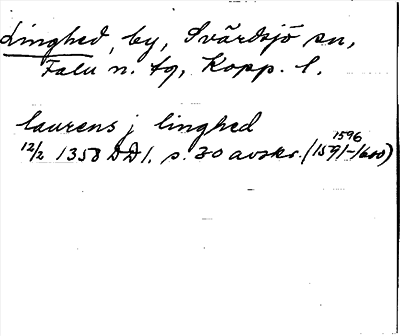 Linghed, by, Svärdsjö sn,
Falu n. tg, Kopp. l.
laurens j linghed
1596
12/2 1358 DD 1. s. 30 avskr. (1591-1600)